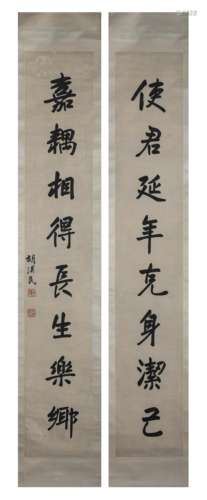 使君延年克身潔己
嘉耦相得長生樂鄉
胡漢民